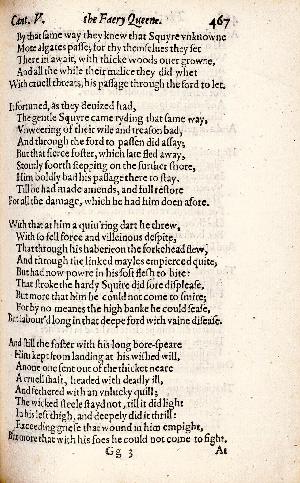 Cant. V. the Faery Queene. 467
By that same way they knew that Squyre vnknowne
Mote algates passe; for thy themselues they set
There in await, with thicke woods ouer growne,
And all the while their malice they did whet
With cruell threats, his passage through the ford to let.
It fortuned, as they deuized had,
The gentle Squyre came ryding that same way,
Vnweeting of their wile and treason bad,
And through the ford to passen did assay;
But that fierce foster, which late fled away,
Stoutly foorth stepping on the further shore,
Him boldly bad his passage there to stay,
Till he had made amends, and full restore
For all the damage, which he had him doen afore.
With that at him a quiu'ring dart he threw,
With so fell force and villeinous despite,
That through his haberieon the forkehead flew,
And through the linked mayles empierced quite,
But had no powre in his soft flesh to bite:
That stroke the hardy Squire did sore displease,
But more that him he could not come to smite;
For by no meanes the high banke he could sease,
But labour'd long in that deepe ford with vaine disease.
And still the foster with his long bore-speare
Him kept from landing at his wished will,
Anone one sent out of the thicket neare
A cruell shaft, headed with deadly ill,
And fethered with an vnlucky quill;
The wicked steele stayd not, till it did light
In his left thigh, and deepely did it thrill:
Exceeding griefe that wound in him empight,
But more that with his foes he could not come to fight.
Gg 3 At